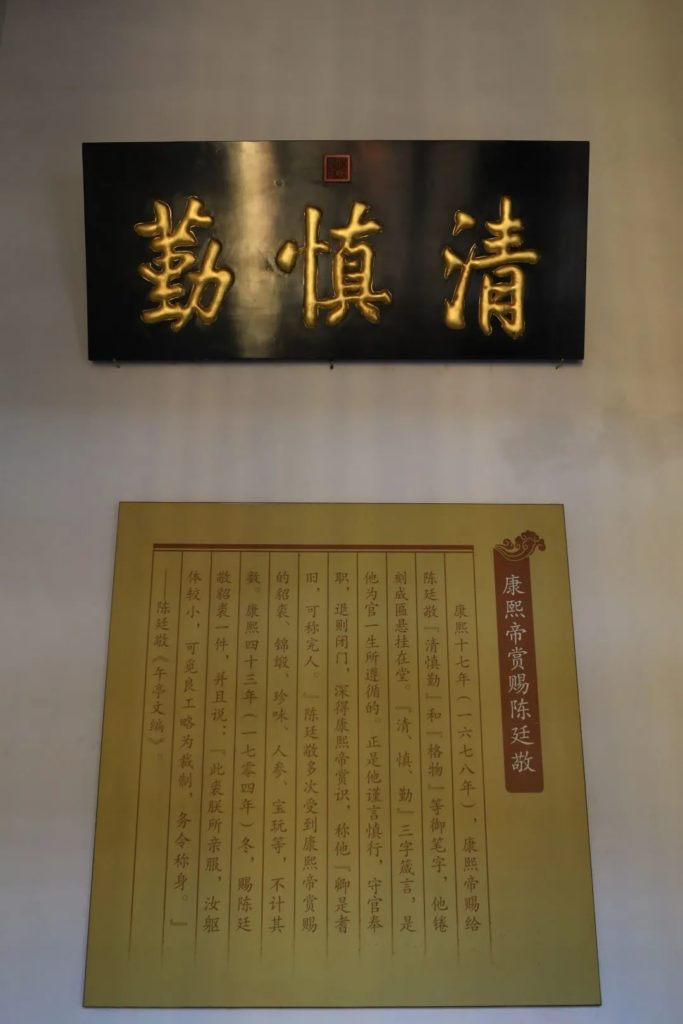 清慎勤
康熙帝赏赐陈廷敬
康熙十七年(一六七八年),康熙帝赐给
陈廷敬『清慎勤』和『格物』等御笔字,他镌
刻成匾悬挂在堂。『清、慎、勤』三字箴言,是
他为官一生所遵循的。正是他谨言慎行,守官奉
职,退则闭门,深得康熙帝赏识,称他『卿是耆
旧,可称完人。』陈廷敬多次受到康熙帝赏赐
的貂裘、锦缎、珍味、人参、宝玩等,不计其
数。康熙四十三年(一七零四年)冬,赐陈廷
敬貂裘一件,并且说:『此裘朕所亲服,汝躯
体较小,可觅良工略为裁制,务令称身。』
——陈廷敬《午亭文编》。